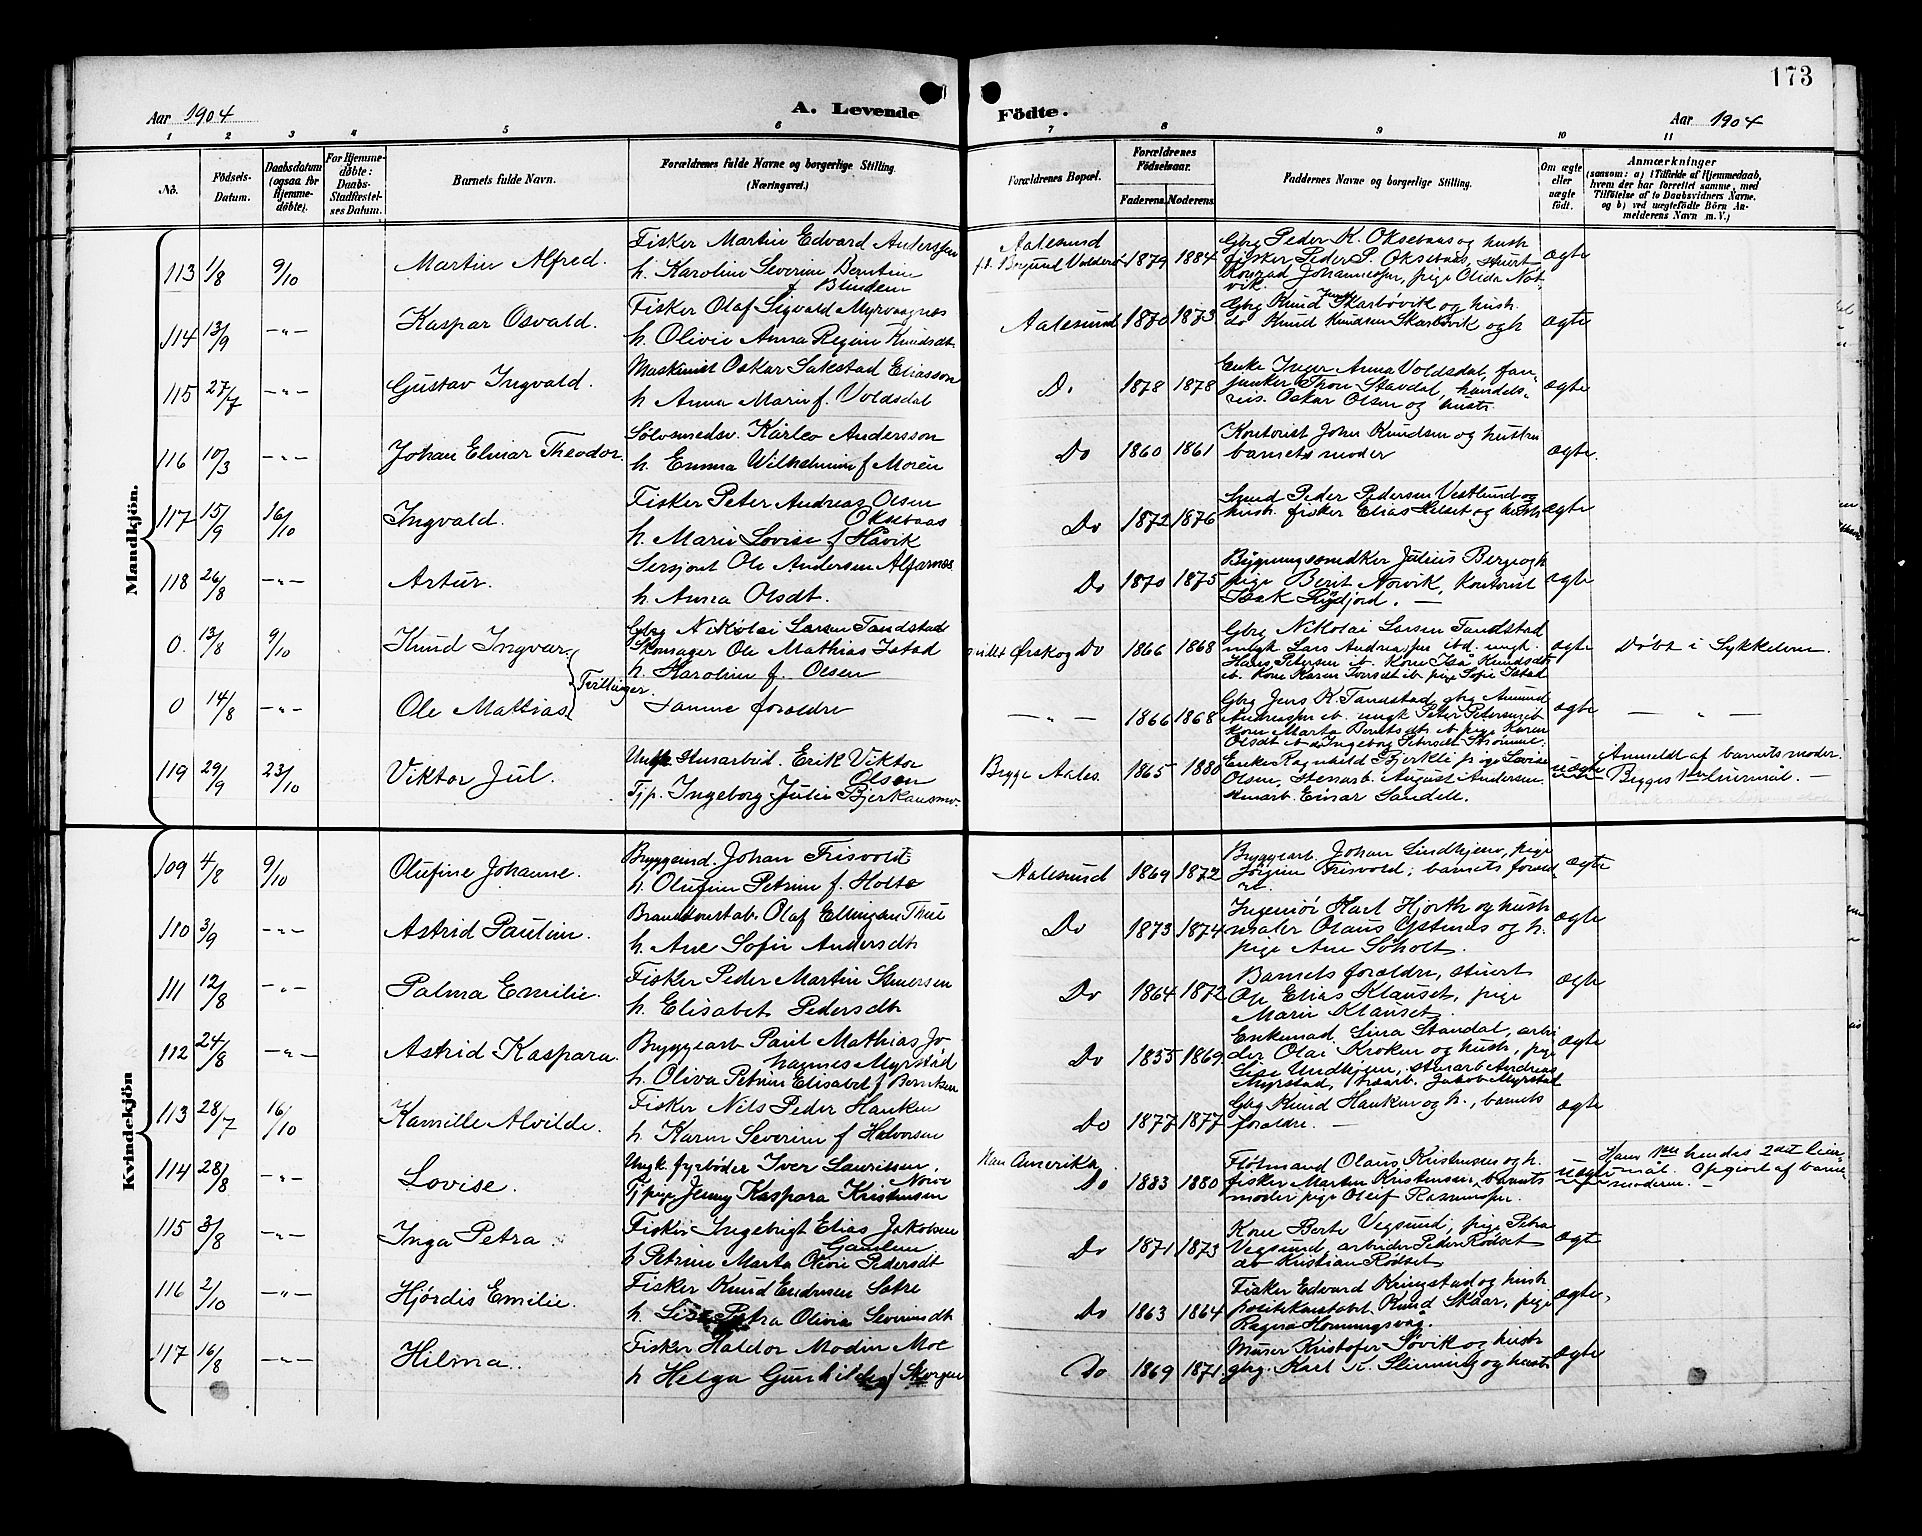 173
Aar 1904
A. Levende
Födte.
Aar 1904
1 2 3 4 5 6 7 8 9 10 11
No.
Födsels-
Datum.
Daabsdatum
(ogsaa for
Hjemme-
døbte).
For Hjemme-
døbte:
Daabs-
Stadfæstel-
ses Datum.
Barnets fulde Navn.
Forældrenes fulde Navne og borgerlige Stilling.
(Næringsvei.)
Forældrenes Bopæl.
Forældrenes
Födselsaar.
Faderens. Moderens.
Faddernes Navne og borgerlige Stilling.
Om ægte
eller
uægte
født.
Anmærkninger
(saasom: a) i Tilfælde af Hjemmedaab,
hvem der har forrettet samme, med
Tilføielse af to Daabsvidners Navne,
og b) ved uægtefødte Börn An-
melderens Navn m. V.)
Mandkjön.
113 1/8 9/10 Martin Alfred.
Fisker Martin Edvard Anderssen
h. Karoline Severine Berntine
f Blindem
Aalesund
1879 1884
Gbrg Peder K. Oksebaas og hustr
fisker Peder P. Oksebaas,
Konrad Johannessen, pige Olida Nøt-
vik.
ægte
114 13/9 -"- Kaspar Osvald.
Fisker Olaf Sigvald Myrvaagnes
h. Olivie Anna Regine Knudsdt.
Aalesund 1870 1873
Gbrg Knud Jensen Skarbøvik og hustr
do Knud Knudsen Skarbøvik og h
ægte
115 27/7 -"- Gustav Ingvald.
Maskinist Oskar Salestad Eliasson
h Anna Marie f. Voldsdal
Do 1878 1878
Enke Inger Anna Voldsdal, fan-
junker Thor Stavdal, handels-
reis. Oskar Olsen og hustr.
ægte
116 10/3 -"- Johan Elmar Theodor.
Sølvsmedsv. Karleo Andersson
h. Emma Wilhelmine f Morén
Do 1860 1861
Kontorist John Knudsen og hustru
barnets moder
ægte.
117 15/9 16/10 Ingvald.
Fisker Peter Andreas Olsen
Oksebaas
h. Marie Lovise f Håvik
Do 1872 1876
Smed Peder Pedersen Vestlund og
hustr. fisker Elias Helset og hustr
ægte
118 26/8 -"- Artur.
Sersjant Ole Andersen Alfarnes
h. Anna Olsdt.
Do 1870 1875
Bygningssnedker Julius Berge og h
pige Berit Norvik, kontorist
Isak Rydjord. —
ægte
0. 13/8 9/10 Knud Ingvar
Gbrg Nikolai Larsen Tandstad
Skomager Ole Mathias Istad
h. Karoline f. Olsen
Ørskog Do 1866 1868
Gbrg Nikolai Larsen Tandstad
ungk Lars Andreassen ibd. ungk.
Hans Petersen ib. Kone Iså Knudsdt
ib. Kone Karen Torsdt ib pige Sofie Istad
ægte
Døbt i Sykkelven.
Tvillinger.
0 14/8 -"- Ole Mattias
Samme forældre
-"- 1866 1868
Gbrg Jens K Tandstad, gbrg Amund
Andreassen ib. ungk Peter Petersen ib
kone Marta Berntsdt ib pige Karen
Olsdt ib do Ingeborg Petersdt Strømme.
ægte
— " —
119 29/9 23/10 Viktor Jul.
Ungk Stenarbeid. Erik Viktor
Olsen
Tjp. Ingeborg Julie Bjerkansmo
Begge Aales. 1865 1880
Enke Ragnhild Bjerkli, pige Lovise
Olsen, Stenarb. August Andersen
stenarb. Einar Sandell.
uægte
Anmeldt af barnets moder.
Begges 1ste leiermål. —
Kvindekjön
109 4/8 9/10 Olufine Johanne.
Johan Frisvold
h. Olufine Petrine f. Holte
Aalesund 1869 1872
Bryggearb. Johan Lindhjem, pige
Jørgine Frisvold; barnets foræld
re.
ægte
110 3/9 -"- Astrid Pauline.
Brandkonstab. Olaf Ellingsen Thue
h. Ane Sofie Andersdt
Do 1873 1874
Ingeniør Karl Hjorth og hustr
maler Olaus Ystenes og h.
pige Ane Soholt.
ægte
111 12/8 -"- Palma Emilie.
Fisker Peder Martin Knutsen
h. Elisabet Pedersdt
Do 1864 1872
Barnets forældre, stuert
Ole Elias Klauset, pige
Marie Klauset.
ægte
112 24/8 -"- Astrid Kaspara.
Bryggearb Paul Mathias Jo-
hannes Myrstad
h. Oliva Petrine Elisabet f Berntsen
Do 1855 1869
Enkemad. Lina Standal, arbei
der Olai Kroken og hustr, pige
Lise Lindhjem, stenarb Andreas
Myrstad, Jakob Myrstad
ægte
113 28/7 16/10 Kamille Alvilde.
Fisker Nils Peder Hanken
h. Karen Severine f Halvorsen
Do 1877 1877
Gbrg Knud Hanken og h., barnets
forældre. —
ægte
114 28/8 -"- Lovise.
Ungk. fyrbøder Iver Lauritssen
Norve
Tj pige Jenny Kaspara Kristensen
Han Amerika
Do 1883 1880
Fløtmand Olaus Kristensen og h.
fisker Martin Kristensen, barnets
moder pige Oleif Rasmussen.
uægte
Hans 1ste hendes 2det leier-
mål. Opgivet af barne-
moderen. —
115 3/8 -"- Inga Petra
Fisker Ingebrigt Elias Jakobsen
Gamlem
h Petrine Marta Olivie Pedersdt
Do 1871 1873
Kone Berte Vegsund, pige Petra
Vegsund, arbeider Peder Rødset
do Kristian Rødset
ægt
116 2/10 -"- Hjørdis Emilie.
Fisker Knud Endresen Sætre
h. Lise Petra Olivia Severinsdt
Do 1863 1864
Fisker Edvard Kringstad og hustr
politikonstabel Knud Skaar, pige
Ragna Honningsvåg.
ægte.
117 16/8 -"- Hilma.
Fisker Haldor Modin Moe
h Helga Gunhilde f Skorgen
Do 1869 1871
Murer Kristofer Søvik og hustr
gbrg. Karl K. Slinning og hustr
ægte